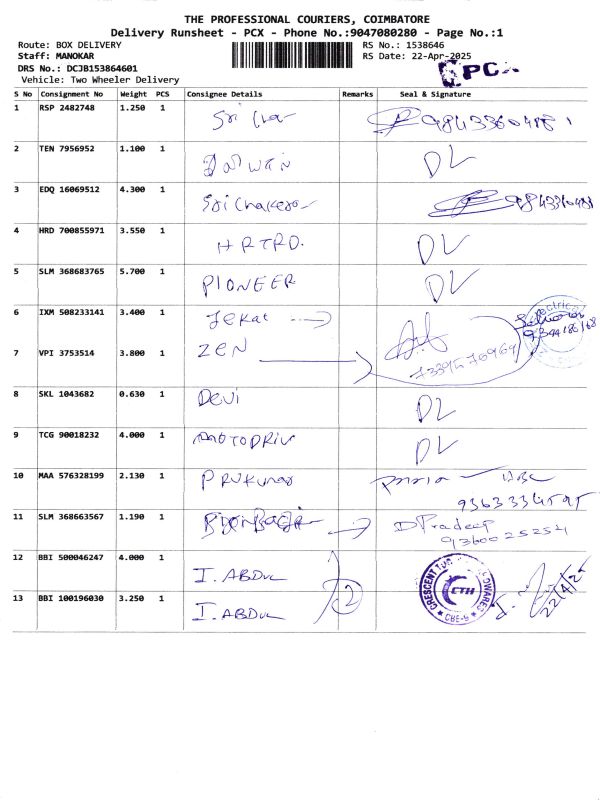 THE PROFESSIONAL COURIERS, COIMBATORE
Delivery Runsheet - PCX - Phone No.:9047080280 - Page No.:1
Route: BOX DELIVERY RS No.: 1538646
Staff: MANOKAR RS Date: 22-Apr-2025
DRS No.: DCJB153864601
PCX
Vehicle: Two Wheeler Delivery
S No Consignment No Weight PCS Consignee Details Remarks Seal & Signature
1 RSP 2482748 1.250 1 Sri
2 TEN 7956952 1.100 1 DL
3 EDQ 16069512 4.300 1
4 HRD 700855971 3.550 1 HRTRD. DL
5 SLM 368683765 5.700 1 PIONEER DL
6 IXM 508233141 3.400 1
7 VPI 3753514 3.800 1 ZEN
8 SKL 1043682 0.630 1 DEVI DL
9 TCG 90018232 4.000 1 DL
10 MAA 576328199 2.130 1
11 SLM 368663567 1.190 1 D Pradeep
9360025254
12 BBI 500046247 4.000 1 I. ABDUL
13 BBI 100196030 3.250 1 I. ABDUL 2 CRESCENT CTH CBE-9 22/4/25